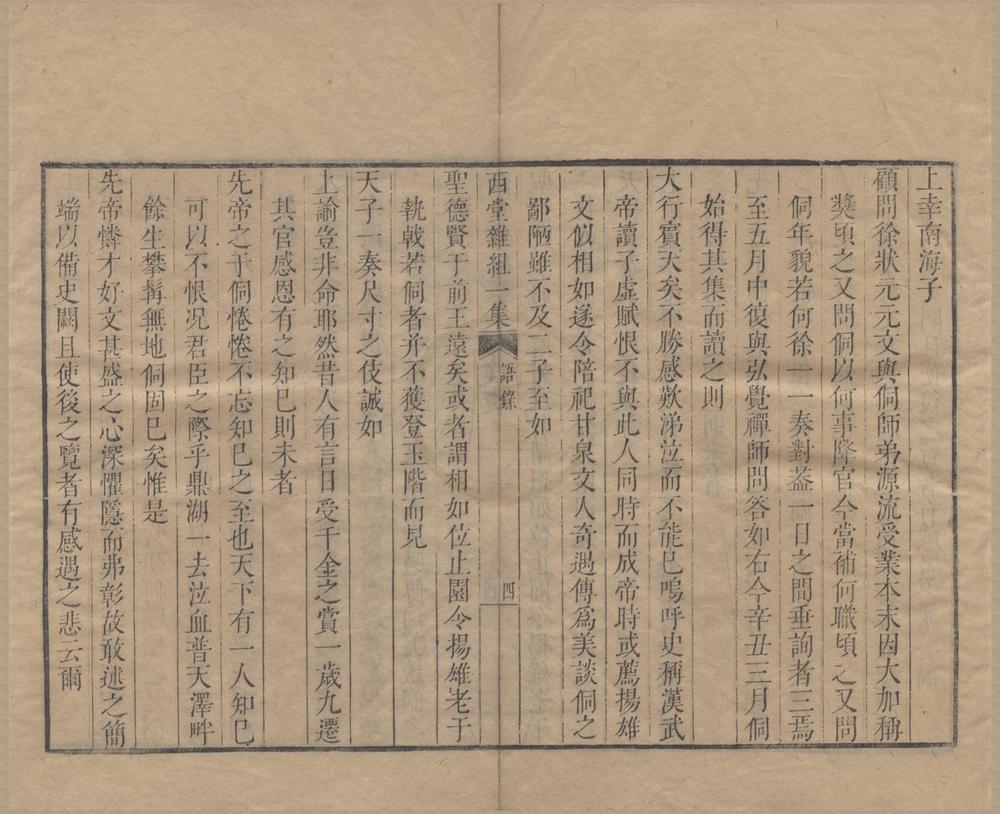 上幸南海子
顧問徐狀元元文與侗師弟源流受業本末因大加稱
獎頃之又問侗以何事降官今當補何職頃之又問
侗年貌若何徐一一奏對葢一日之間垂詢者三焉
至五月中復與弘覺禪師問答如右今辛丑三月侗
始得其集而讀之則
大行賓天矣不勝感歎涕泣而不能巳嗚呼史稱漢武
帝讀子虛賦恨不與此人同時而成帝時或薦揚雄
文似相如遂令陪祀甘泉文人奇遇傳爲美談侗之
鄙陋雖不及二子至如
西堂雜組一集 語錄 四
聖德賢于前王遠矣或者謂相如位止園令揚雄老于
執戟若侗者并不獲登玉階而見
天子一奏尺寸之伎誠如
上諭豈非命耶然昔人有言曰受千金之賞一歲九遷
其官感恩有之知巳則未者
先帝之于侗惓惓不忘知巳之至也天下有一人知巳
可以不恨况君臣之際乎鼎湖一去泣血普天澤畔
餘生攀髯無地侗固巳矣惟是
先帝憐才好文甚盛之心深懼隱而弗彰故敢述之簡
端以備史闕且使後之覽者有感遇之悲云爾